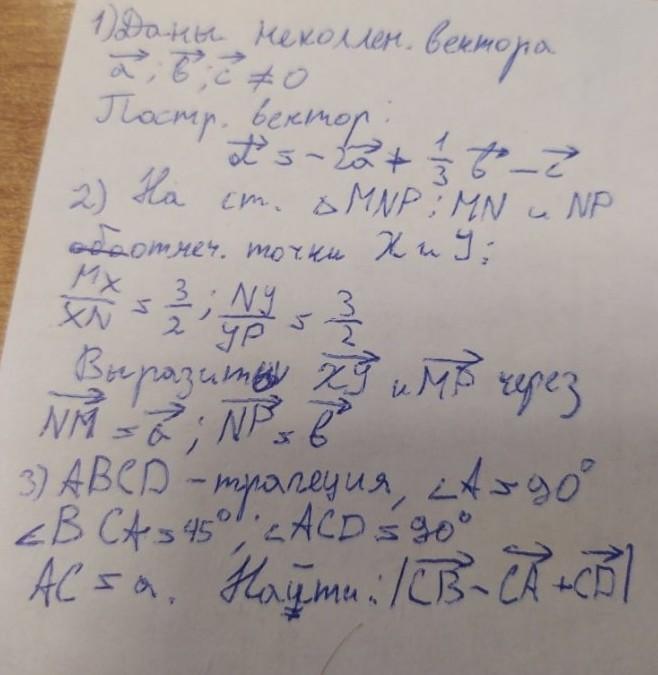 1) Даны неколлен. вектора
a⃗ ; b⃗ ; c⃗ ≠ 0
Постр. вектор:
d⃗ = -2a⃗ + 1/3 b⃗ - c⃗
2) На ст. △MNP: MN и NP
отмеч. точки X и Y;
MX/XN = 3/2 ; NY/YP = 3/2
Выразить XY⃗ и MP⃗ через
NM⃗ = a⃗ ; NP⃗ = b⃗
3) ABCD - трапеция, ∠A = 90°
∠BCA = 45°; ∠ACD = 90°
AC = a. Найти: |CB⃗ - CA⃗ + CD⃗|